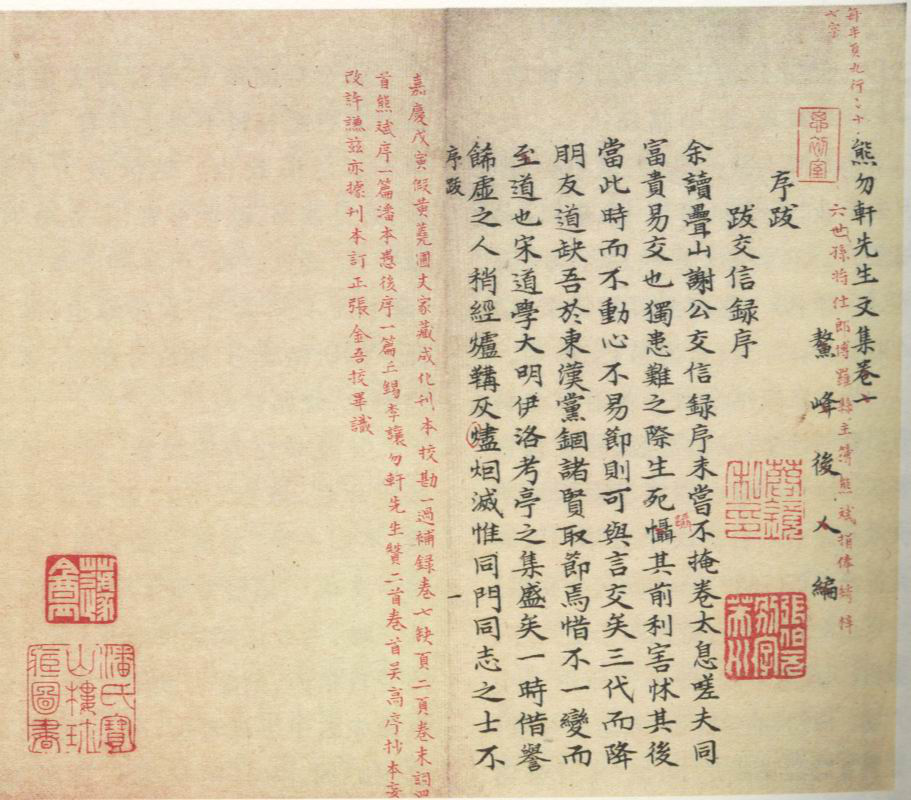 每半頁九行行十
七字
熊勿軒先生文集卷一
六世孫將仕郎博羅縣主簿熊斌捐俸
鰲峰後人編
序跋
跋交信録序
余讀疊山謝公交信録序未嘗不掩卷太息嗟夫同
富貴易交也獨患難之際生死懾其前利害怵其後
當此時而不動心不易節則可與言交矣三代而降
朋友道缺吾於東漢黨錮諸賢取節焉惜不一變而
至道也宋道學大明伊洛考亭之集盛矣一時借譽
餙虛之人稍經爐鞲灰燼烟滅惟同門同志之士不
序跋
一
嘉慶戊寅假黃蕘圃丈家藏成化刊本挍勘一過補録卷七缺頁二頁卷末詞四
首熊斌序一篇潘本愚後序一篇丘錫李讓勿軒先生贊二首卷首吴高序抄本妄
改許謙茲亦據刊本訂正張金吾挍畢識
張伯元
別字
芙川
潘氏
山樓
圖書